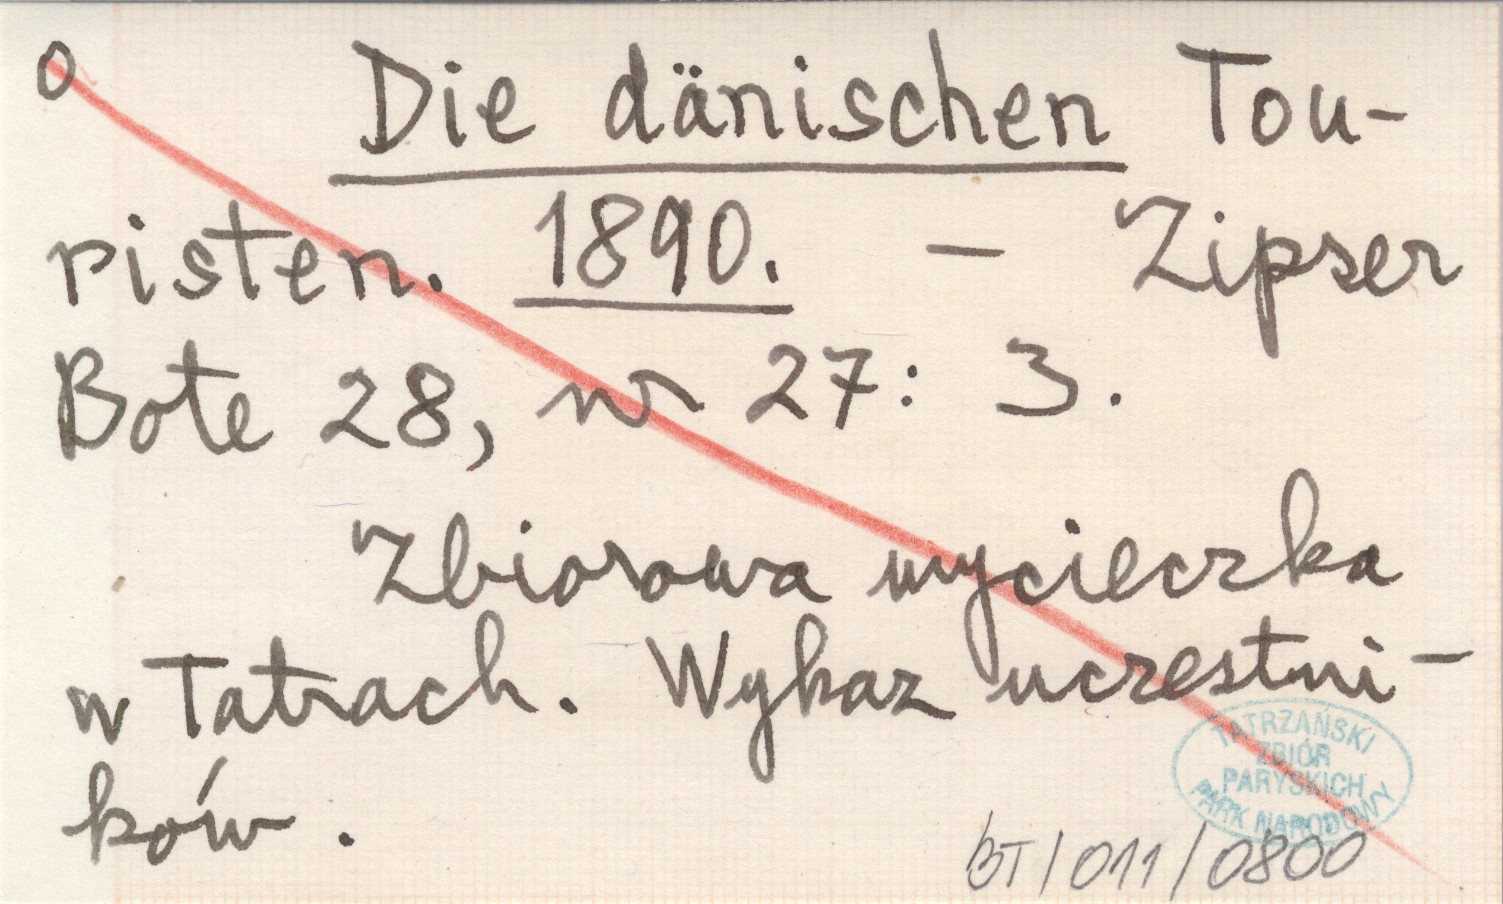 o Die dänischen Tou-
risten. 1890. – Zipser
Bote 28, nr 27: 3.
Zbiorowa wycieczka
w Tatrach. Wykaz uczestni-
ków.
TATRZAŃSKI
ZBIÓR
PARYSKICH
PARK NARODOWY
BT/011/0800